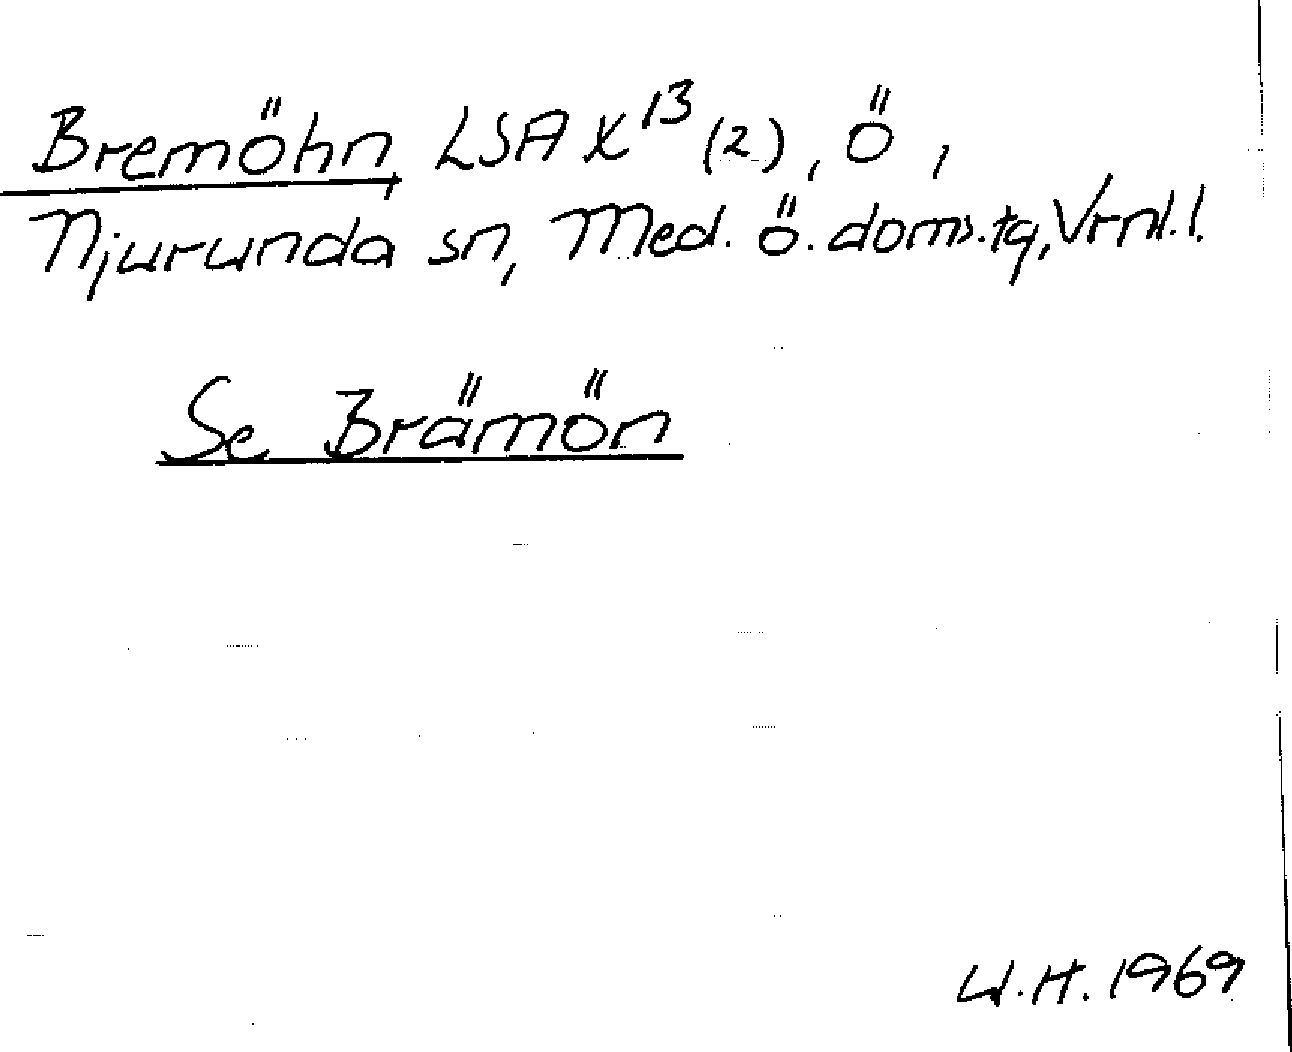 Bremöhn, LSA X¹³ (2), ö,
Njurunda sn, Med. ö. doms.tg, Vrnl.l.
Se Brämön
U.H. 1969